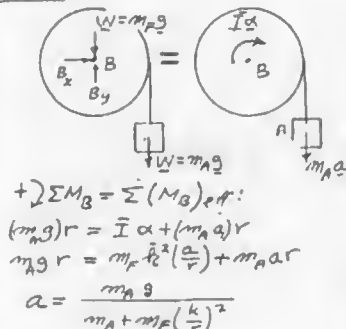 W=m_F g
Īα
B_x B
B_y
=
B
A
W=m_A g
m_A a
+↻ΣM_B = Σ(M_B)eff:
(m_A g)r = Īα + (m_A a)r
m_A g r = m_F k̄²(a/r) + m_A a r
a = m_A g / (m_A + m_F(k/r)²)